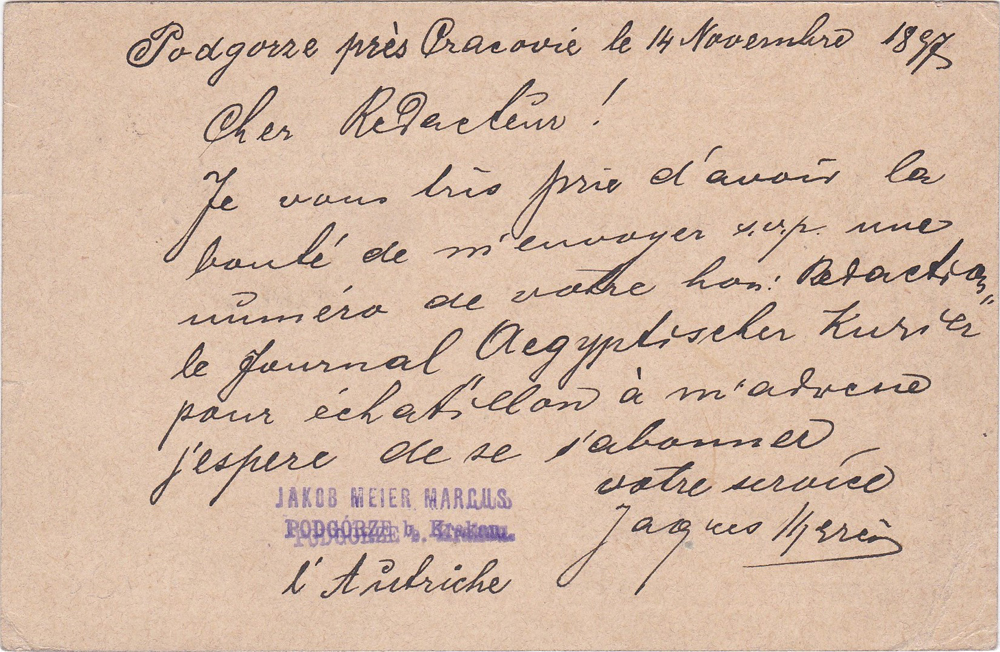 Podgorze près Cracovie le 14 Novembre 1897
Cher Redacteur!
Je vous tris prie d'avoir la
bonté de m'envoyer s.v.p. une
numéro de votre hon: Redaction
le Journal "Aegyptischer Kurier"
pour échatillon à m'adresse
j'espere de se s'abonner
votre service
Jaques
JAKOB MEIER MARCUS
PODGÓRZE b. Krakau.
l'Autriche